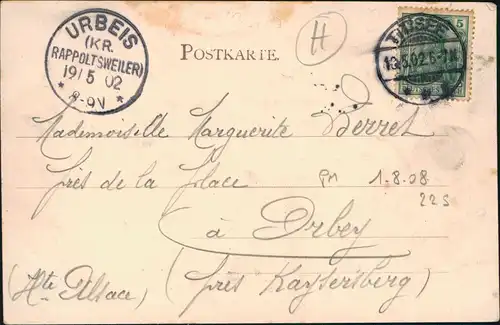 URBEIS
(KR.
RAPPOLTSWEILER)
19/5 02
* 8-9V *
POSTKARTE.
H
5
5.02.6-7N
Mademoiselle Marguerite Verret
près de la place
PM 1-8.08
225
à Orbey
(près Kaysersberg)
(Hte Alsace)